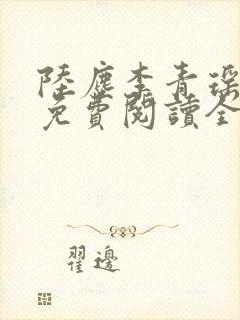 陸塵李青瑶
免費閱讀全
翟邊